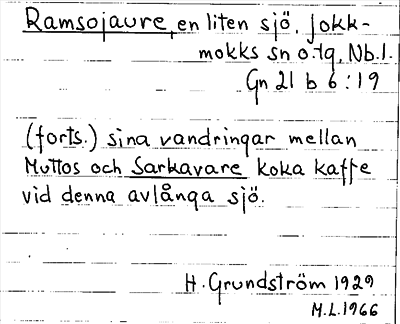 Ramsojaure, en liten sjö, Jokk-
mokks sn o. tg, Nb. l.
Gn 21 b 6:19
(forts.) sina vandringar mellan
Muttos och Sarkavare koka kaffe
vid denna avlånga sjö.
H. Grundström 1929
M.L. 1966